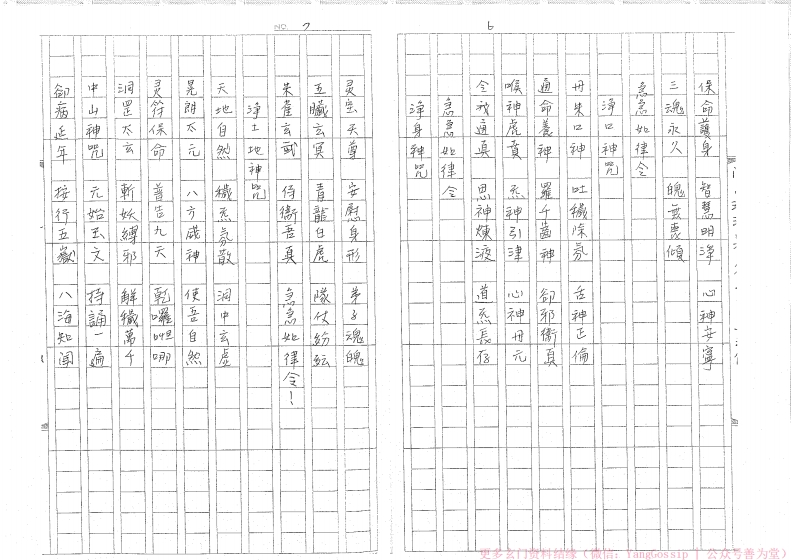 6
保命護身 智慧明淨 心神安寧
三魂永久 魄無喪傾
急急如律令
淨口神咒
丹朱口神 吐穢除氛 舌神正倫
通命養神 羅千齒神 卻邪衛真
喉神虎賁 炁神引津 心神丹元
令我通真 思神煉液 道炁長存
急急如律令
淨身神咒
NO. 7
灵宝天尊 安慰身形 弟子魂魄
五臟玄冥 青龍白虎 隊仗紛紜
朱雀玄武 侍衛吾真 急急如律令！
淨土地神咒
天地自然 穢炁氛散 洞中玄虛
晃朗太元 八方威神 使吾自然
灵符保命 普告九天 乾囉呾哪
洞罡太玄 斬妖縛邪 解穢萬千
中山神咒 元始玉文 持誦一遍
卻病延年 按行五嶽 八海知聞
更多玄门资料结缘（微信：YangGossip | 公众号善为堂）